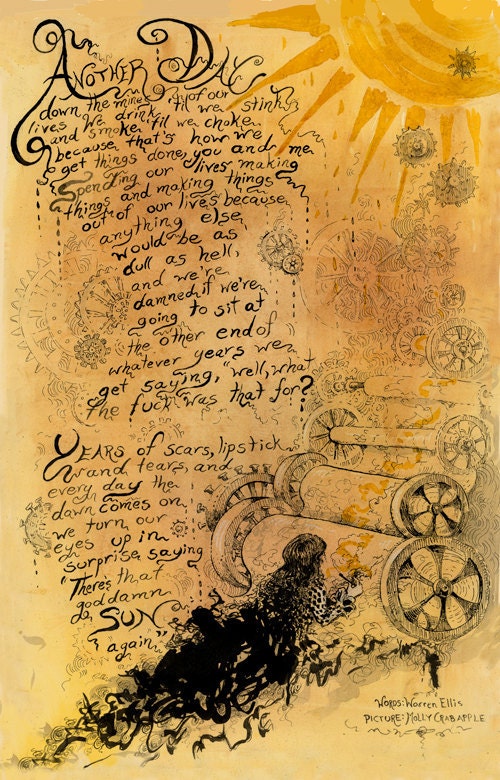 Another Day
down the mines of our
lives. We drink 'til we stink,
and smoke 'til we choke
because that's how we
get things done, you and me
Spending our lives making
things and making things
out of our lives because
anything else
would be as
dull as hell,
and we're
damned if we're
going to sit at
the other end of
whatever years we
get saying, "well, what
the fuck was that for?
Years of scars, lipstick
and tears, and
every day the
dawn comes on
we turn our
eyes up in
surprise, saying
"There's that
goddamn
SUN
again."
Words: Warren Ellis
Picture: Molly Crabapple